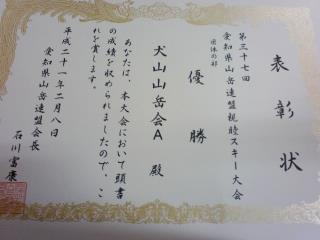 表彰状
第三十七回
愛知県山岳連盟親睦スキー大会
団体の部
優勝
犬山山岳会A 殿
あなたは、本大会において頭書
の成績を収められましたので、こ
れを賞します。
平成二十一年二月八日
愛知県山岳連盟会長
石川富康